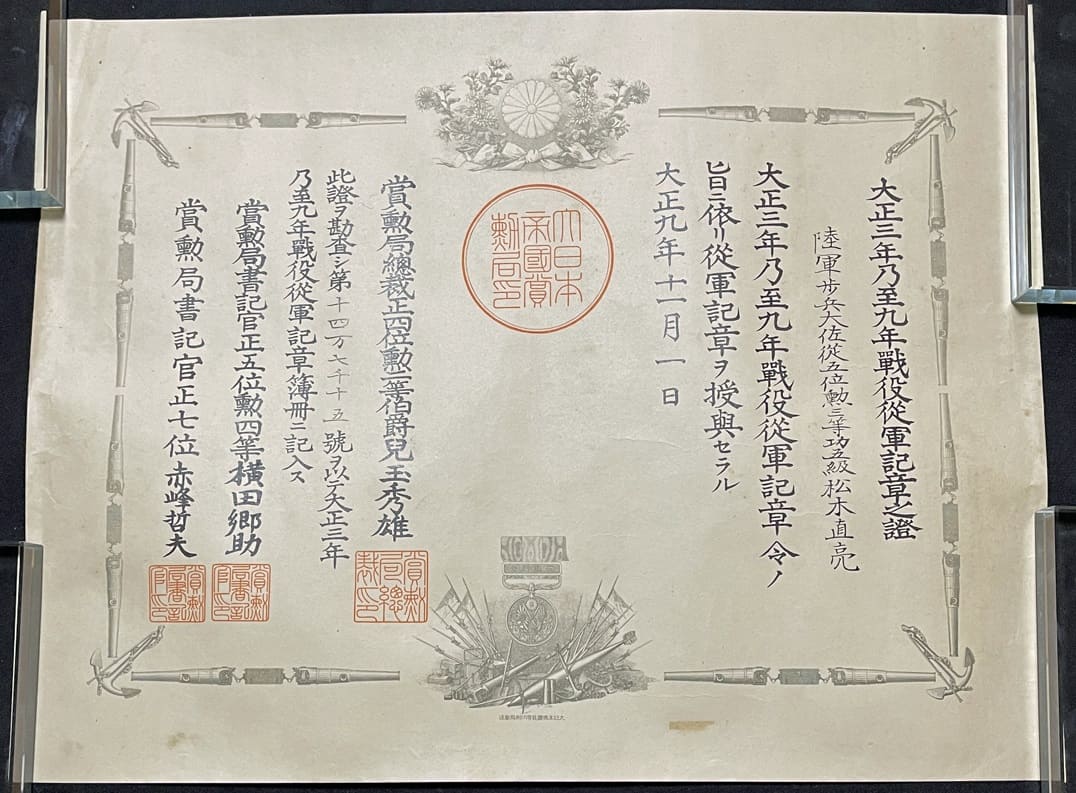 大正三年乃至九年戰役從軍記章之證
陸軍步兵大佐從五位勲三等功五級松木直亮
大正三年乃至九年戰役從軍記章令ノ
旨ニ依リ從軍記章ヲ授與セラル
大正九年十一月一日
大日本
帝國賞
勲局印
賞勲局總裁正四位勲一等伯爵兒玉秀雄
賞勲
局總
裁印
此證ヲ勘査シ第十四万七千十五號ヲ以テ大正三年
乃至九年戰役從軍記章簿册ニ記入ス
賞勲局書記官正五位勲四等横田郷助
賞勲
局書記
官印
賞勲局書記官正七位赤峰哲夫
賞勲
局書記
官印